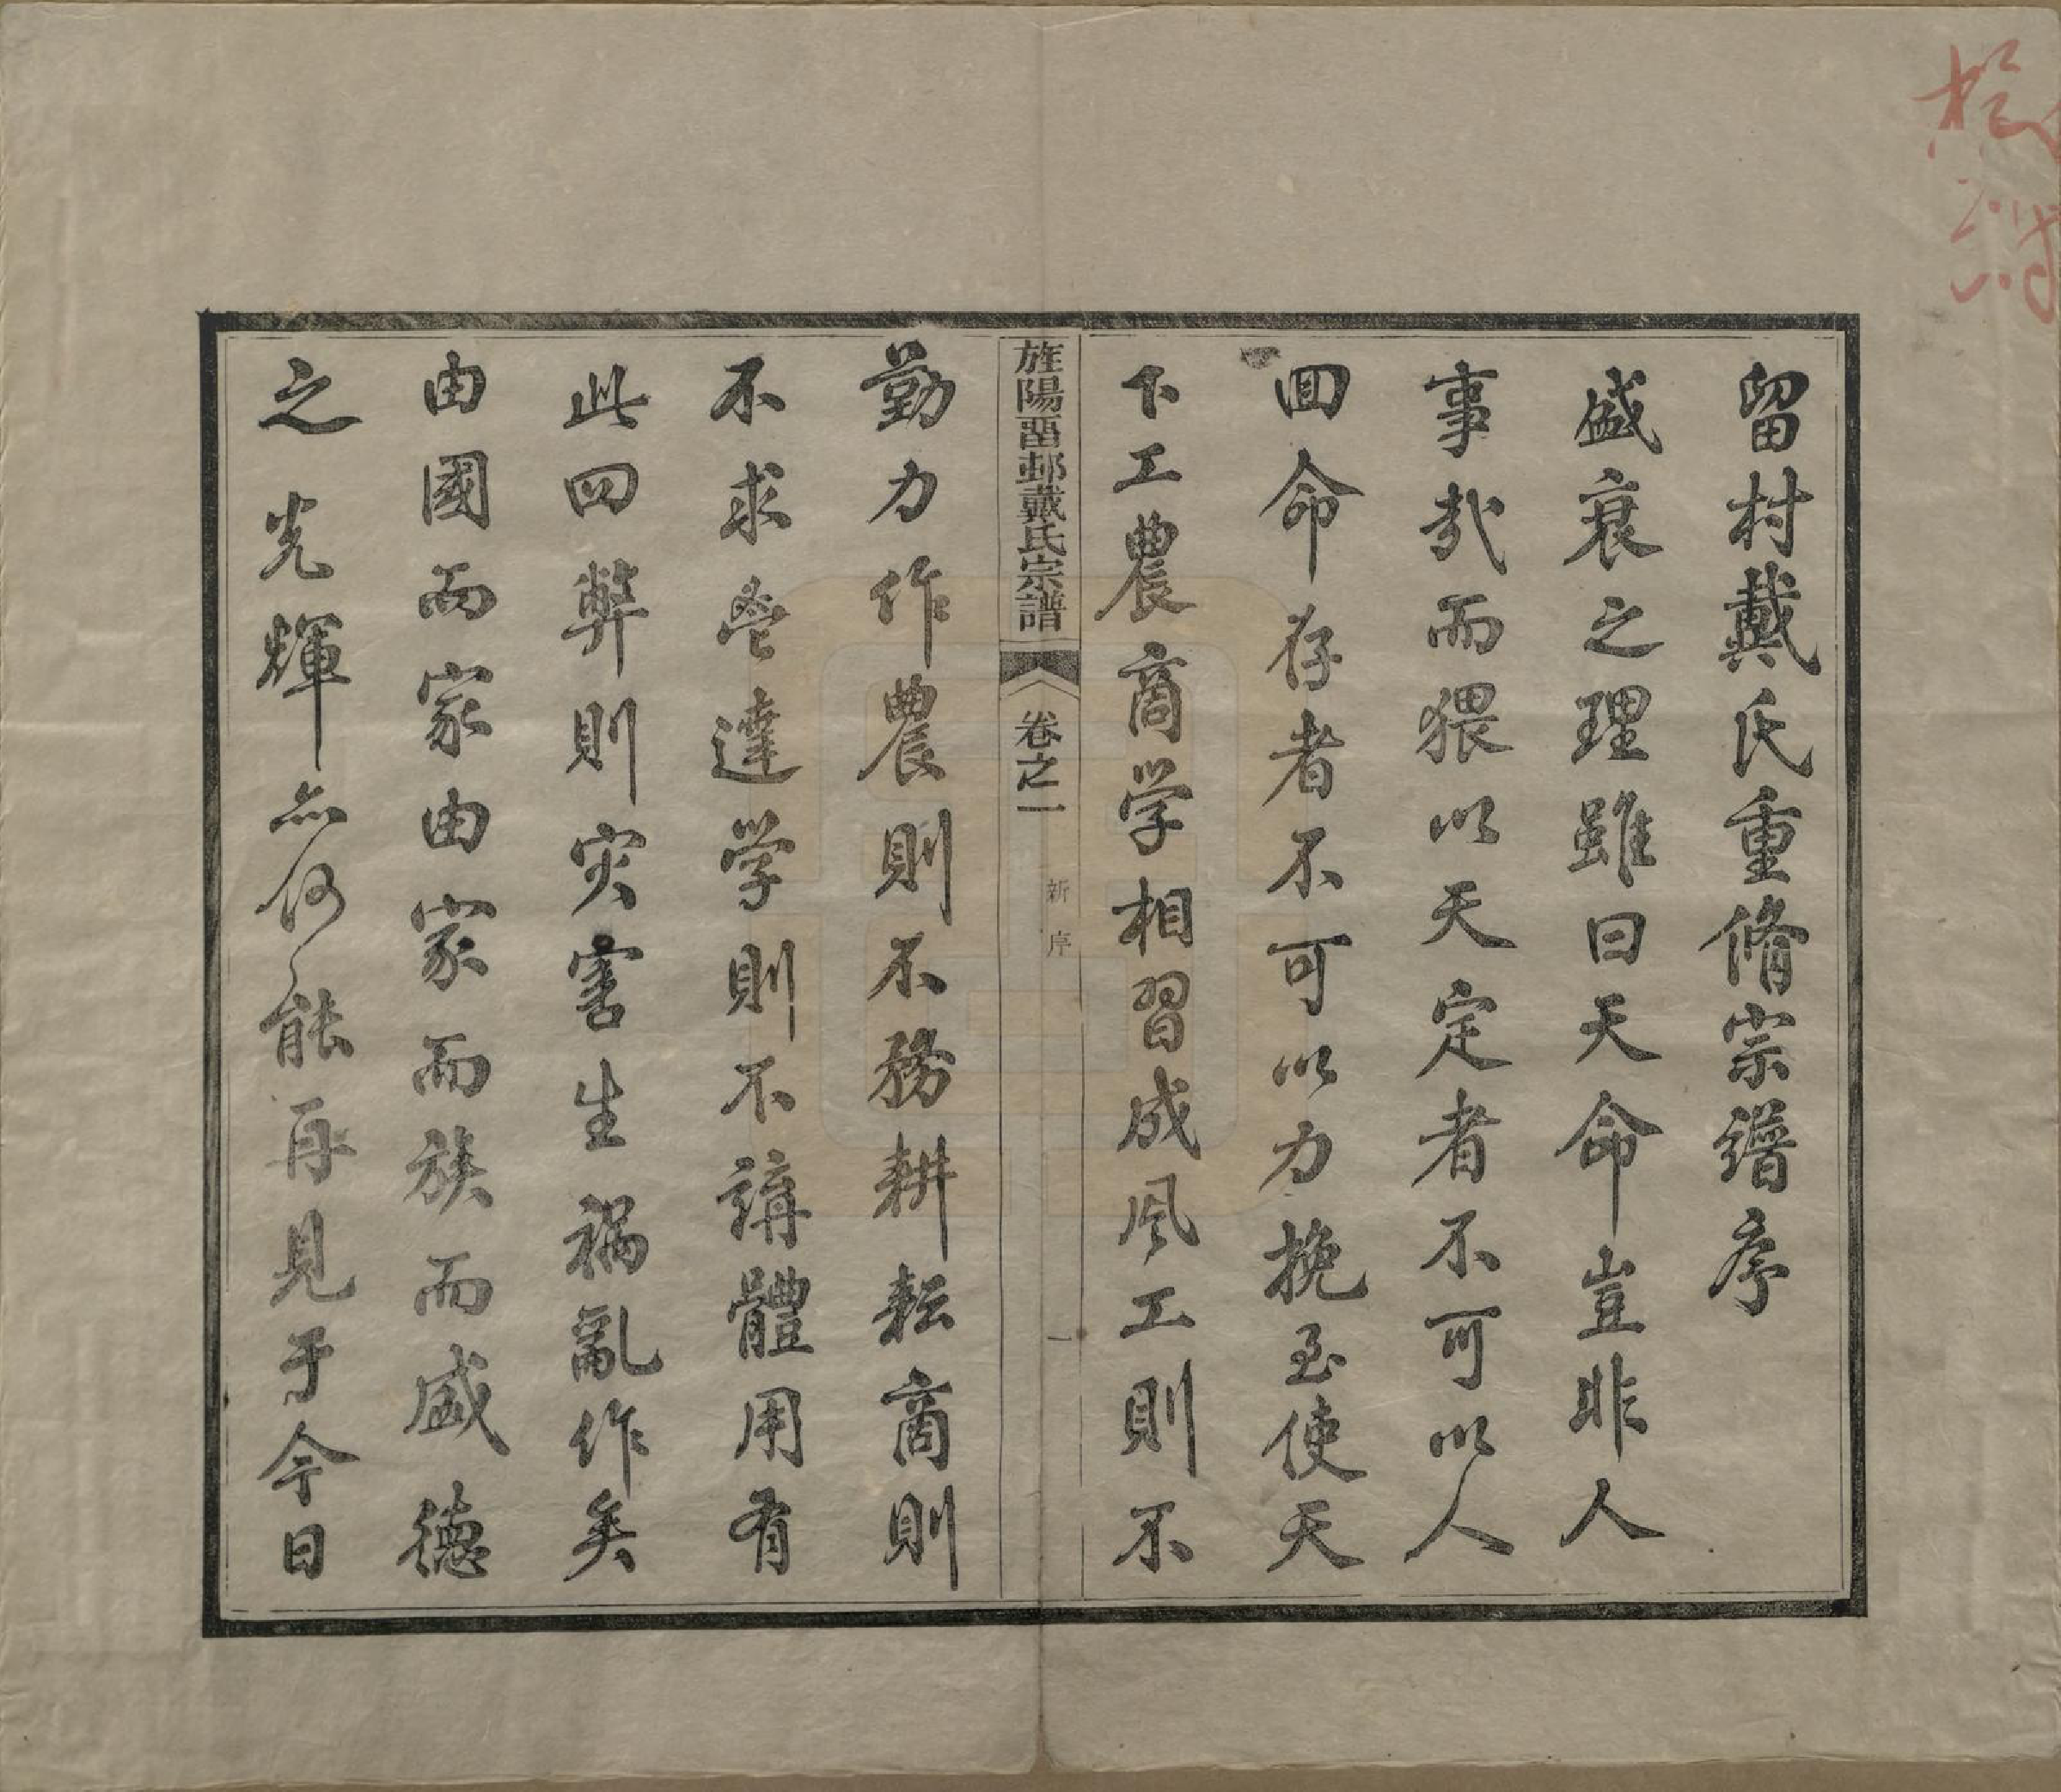 留村戴氏重脩宗譜序
盛衰之理雖曰天命豈非人
事㢤而猥以天定者不可以人
回命存者不可以力挽至使天
下工農商学相習成风工則不
旌陽畱邨戴氏宗譜
卷之一
新序
一
勤力作農則不務耕耘商則
不求營達学則不講體用有
此四弊則灾害生禍亂作矣
由國而家由家而族而盛德
之光輝亦何能再見于今日